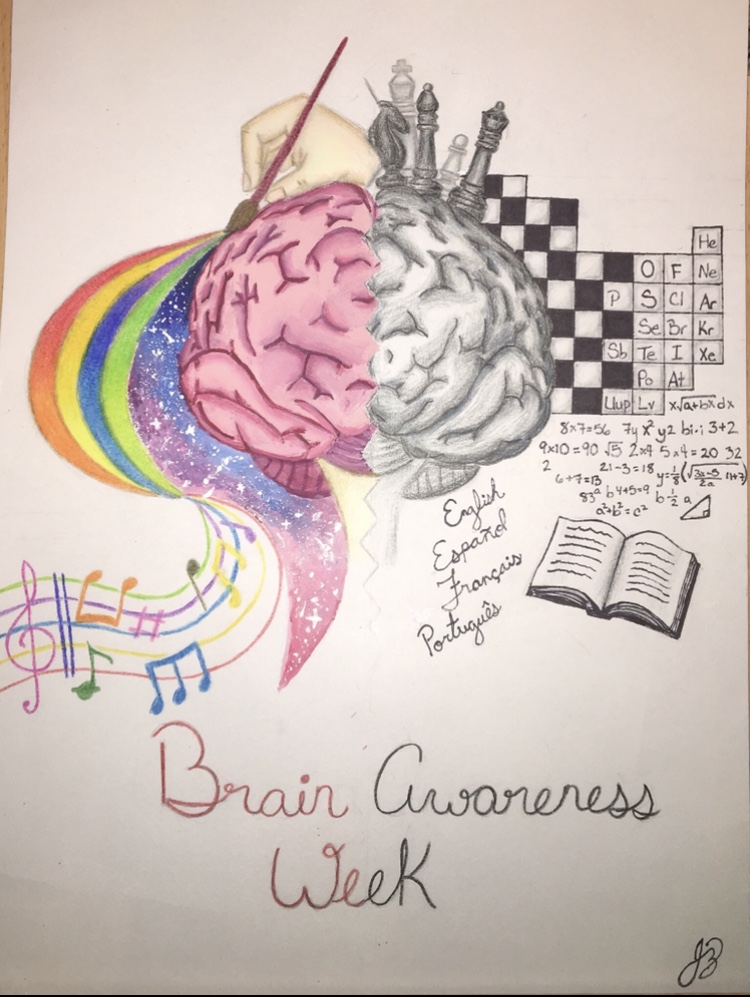 He
O F Ne
P S Cl Ar
Se Br Kr
Sb Te I Xe
Po At
Uup Lv x√a+bx dx
8×7=56 7y x² y2 bi·i 3+2
9×10=90 √5 2×4 5×4=20 32
2 21-3=18 y=1/8
6+7=13
83ª b4+5=9 b-1/2 a
a²+b²=c²
English
Español
Français
Português
Brain Awareness
Week
JB